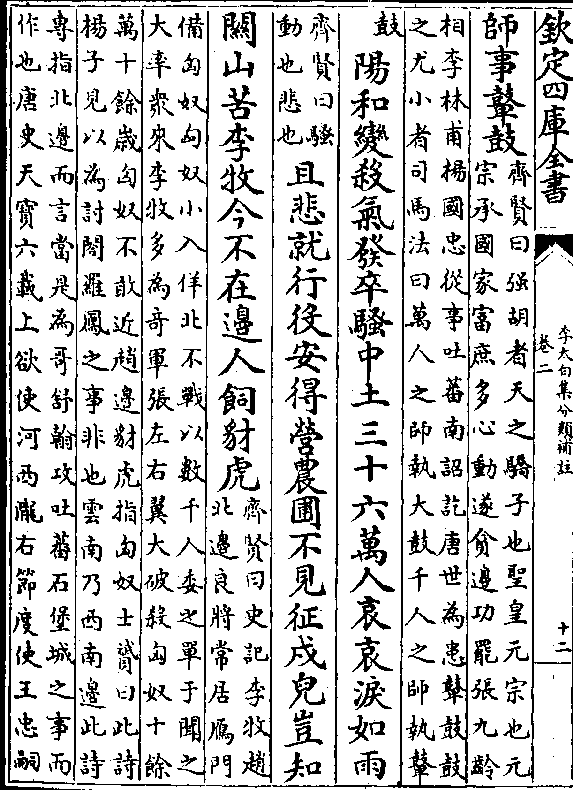 欽定四庫全書
李太白集分類補註
卷二
十二
師事鼙鼓
齊賢曰强胡者天之驕子也聖皇元宗也元
宗承國家富庶多心動遂貪邊功罷張九齡
相李林甫楊國忠從事吐蕃南詔訖唐世為患鼙鼓鼓
之尤小者司馬法曰萬人之師執大鼓千人之師執鼙
鼓
陽和變殺氣發卒騷中土三十六萬人哀哀淚如雨
齊賢曰騷
動也悲也
且悲就行役安得營農圃不見征戍兒豈知
關山苦李牧今不在邊人飼豺虎
齊賢曰史記李牧趙
北邊良將常居鴈門
備匈奴匈奴小入佯北不戰以數千人委之單于聞之
大率衆來李牧多為奇軍張左右翼大破殺匈奴十餘
萬十餘歲匈奴不敢近趙邊豺虎指匈奴士贇曰此詩
楊子見以為討閤羅鳳之事非也雲南乃西南邊此詩
專指北邊而言當是為哥舒翰攻吐蕃石堡城之事而
作也唐史天寶六載上欲使河西隴右節度使王忠嗣